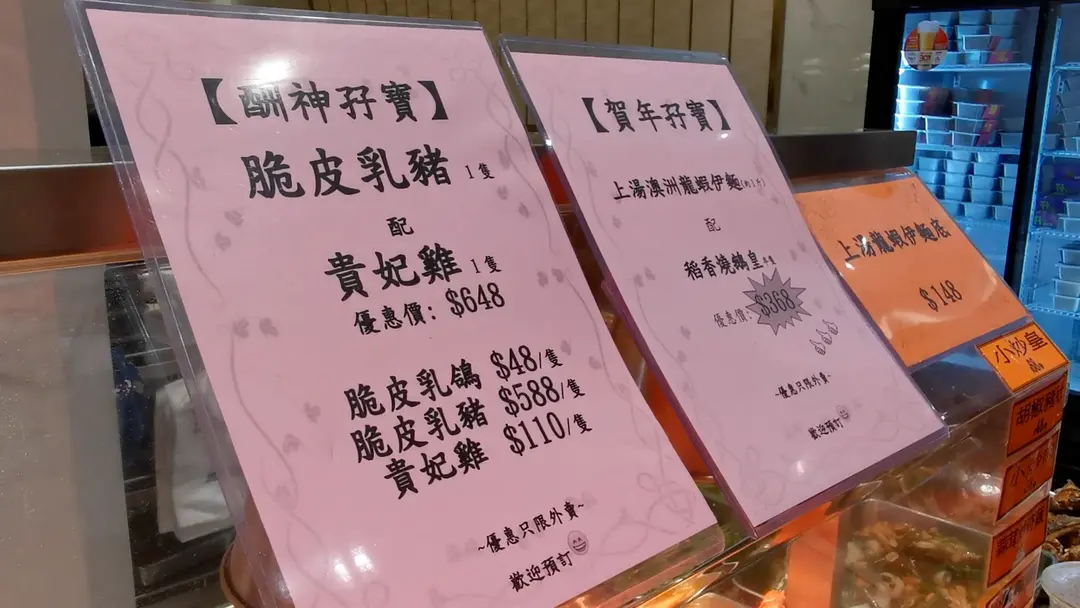 【酬神孖寶】
脆皮乳豬 1隻
配
貴妃雞 1隻
優惠價: $648
脆皮乳鴿 $48/隻
脆皮乳豬 $588/隻
貴妃雞 $110/隻
~優惠只限外賣~
歡迎預訂
【賀年孖寶】
上湯澳洲龍蝦伊麵
配
稻香燒鵝皇
優惠價: $368
~優惠只限外賣~
歡迎預訂
上湯龍蝦伊麵底
$148
小炒皇
胡椒豬